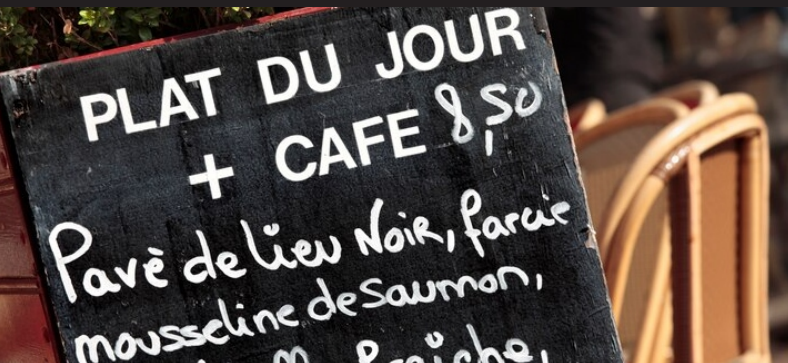 PLAT DU JOUR
+ CAFE 8,50
Pavè de lieu Noir, farcie
mousseline de saumon,
fraiche,